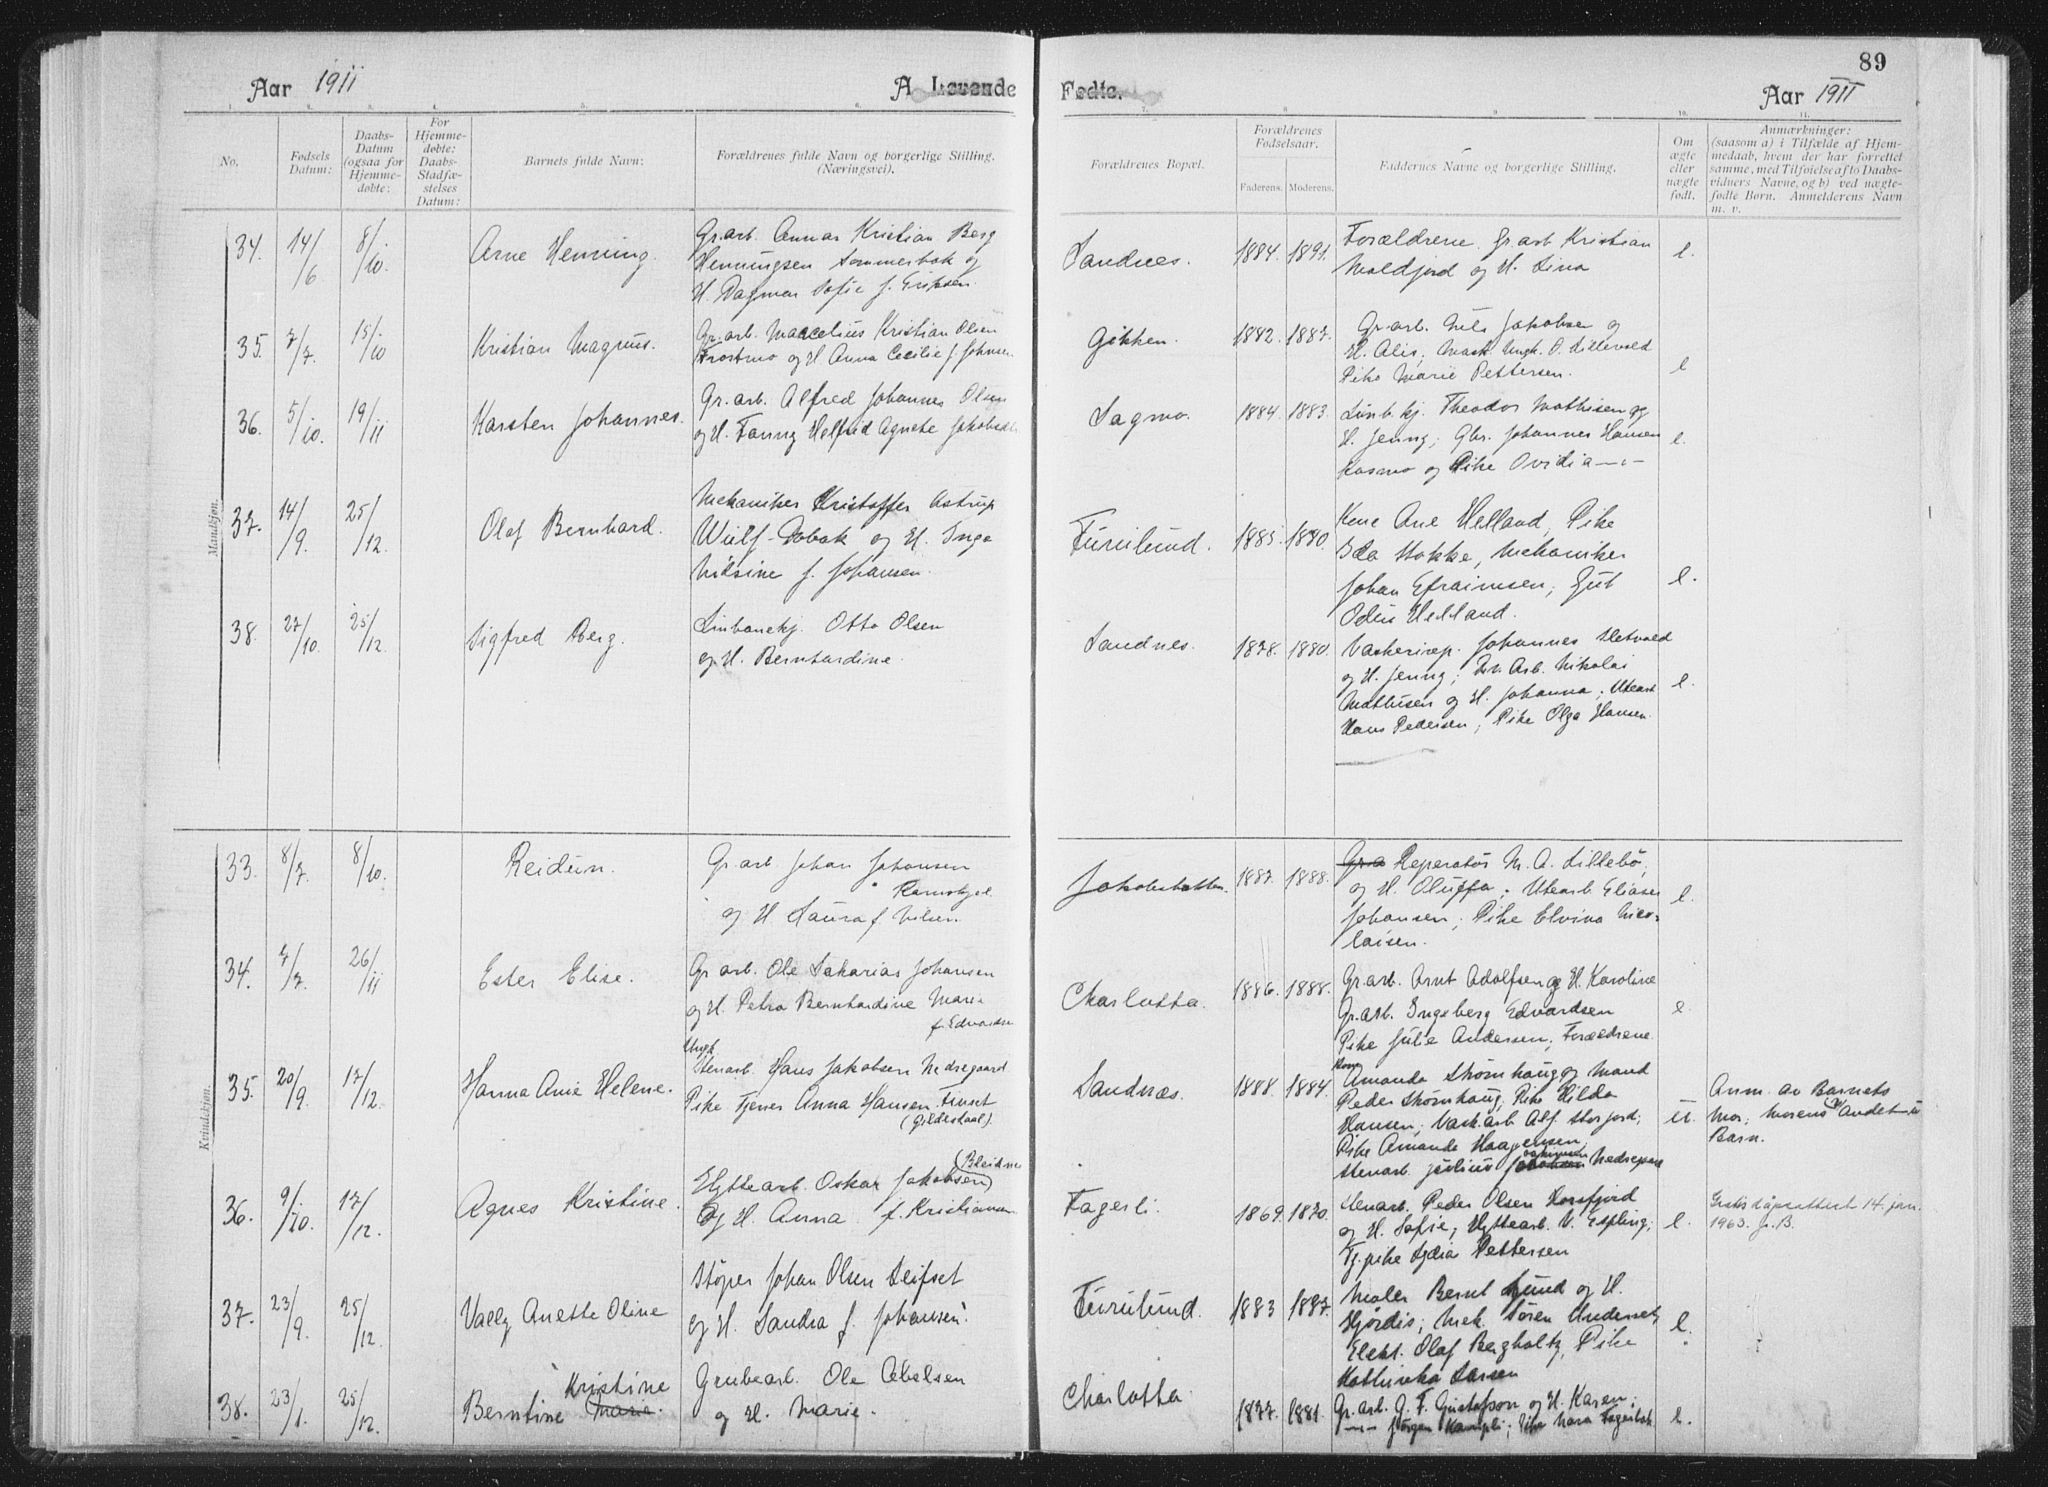 89
Aar 1911
A. Levende
Fødte.
Aar 1911
1. 2. 3. 4. 5. 6.
7. 8. 9. 10. 11.
No.
Fødsels Datum:
Daabs-Datum (ogsaa for Hjemme-døbte:
For Hjemme-døbte: Daabs-Stadfæ-stelses Datum:
Barnets fulde Navn:
Forældrenes fulde Navn og borgerlige Stilling. (Næringsvei).
Forældrenes Bopæl.
Forældrenes Fødselsaar.
Faderens. Moderens.
Faddernes Navne og borgerlige Stilling.
Om ægte eller uægte født.
Anmærkninger:
(saasom a) i Tilfælde af Hjem-
medaab, hvem der har forrettet
samme, med Tilføielse af to Daabs-
vidners Navne, og b) ved uægte-
fødte Børn. Anmelderens Navn
m. v.
Mandkjøn.
34. 14/6 8/10. Arne Henning.
Gr.arb. Annar Kristian Berg
Henningsen Sommerbak og
H. Dagmar Sofie f. Eriksen.
Sandnes. 1884. 1891.
Forældrene. Gr. arb Kristian
Moldjord og H. Lina
e.
35. 7/7. 15/10 Kristian Magnus.
Gr.arb. Marcelius Kristian Olsen
Trostmo og H Anna Cecilie f. Johnsen
Gikken. 1882. 1887.
Gr.arb. Nils Jakobsen og
H. Alis; Mask. Ungk. O. Lillevold
Pike Marie Pettersen.
e
36. 5/10. 19/11 Karsten Johannes.
Gr. arb. Alfred Johannes Olsen
og H. Fanny Helfrid Agnete Jakobsen
Sagmo. 1884. 1883.
Linb.kj. Theodor Mathisen og
H. Jenny; Gbr. Johannes Hansen
Kosmo og Pike Ovidia —"—
e.
37. 14/9. 25/12. Olaf Bernhard.
Mekaniker Kristoffer Astrup
Wulf-Dobak og H. Inga
Nilsine f. Johansen.
Furulund. 1885. 1890.
Kone Ane Helland, Pike
Ida Stokke, Mekaniker
Johan Efraimsen; Gut
Odin Helland.
e.
38. 27/10. 25/12. Sigfred Berg.
Linbanekj. Otto Olsen
og H. Bernhardine.
Sandnes. 1878. 1880.
Vaskeriarp. Johannes Hetvold
og H. Jenny; Arb. Nikolai
Mathisen og H. Johanna; Utearb
Hans Pedersen; Pike Olga Hansen.
e.
Kvindekjøn.
33. 8/7. 8/10. Reidun.
Gr.arb Johan Johansen
Ramskjel
og H. Laura f. Nilsen
Jakobsbakken. 1887. 1888.
Gr.a Reperatör M. A. Lillebö,
og H. Oluffa; Utearb. Elias
Johansen; Pike Elvina Nico-
laisen.
e.
34. 7/7. 26/11 Ester Elise.
Gr arb. Ole Sakarias Johansen
og H. Petra Bernhardine Marie
f. Edvardsen
Charlotta. 1886. 1888.
Gr.arb. Arnt Adolfsen og H. Karoline
Gr.arb. Ingeberg Edvardsen
Pike Julie Andersen; Forældrene.
e
35. 20/9. 17/12. Hanna Anie Helene.
Ungk
Stenarb. Hans Jakobsen Nedregaard
Pike Tjener Anna Hansen
(Gildeskaal).
Sandnæs. 1888. 1884.
Kone
Amanda Skomhaug og Mand
Peder Skomhaug; Pike Hilda
Hansen; Vask.arb Alf. Storjord;
Pike Amanda Haagensen,
Stenarb. Julius
u.
Anm. av Barnets
Mor; Morens Andet u
Barn.
36. 9/10. 17/12. Agnes Kristine.
Hyttearb. Oskar Jakobsen
og H. Anna f. Kristiansen
Fagerli. 1869. 1870.
Stenarb. Peder Olsen Torsfjord
og H. Sofie; Hyttearb. V. Espling;
Tj.pike Lydia Pettersen
e.
Gratis dåpsattest 14. jan.
1963.
37. 23/9. 25/12. Vally Anette Oline
Støper Johan Olsen Leifset
og H. Sandra f. Johansen.
Furulund. 1883 1887.
Maler Bernt Lund og H.
Hjørdis; Mek. Sören
Elekt. Olaf Bergholtz, Pike
Kathinka Larsen
e.
38. 23/1. 25/12. Berntine Marie. Kristine
Grubearb. Ole Abelsen
og H. Marie.
Charlotta. 1877. 1881.
Gr.arb. G. F. Gustafson og H. Karen;
—"— Jörgen; Pike Nora Fagerbak
e.